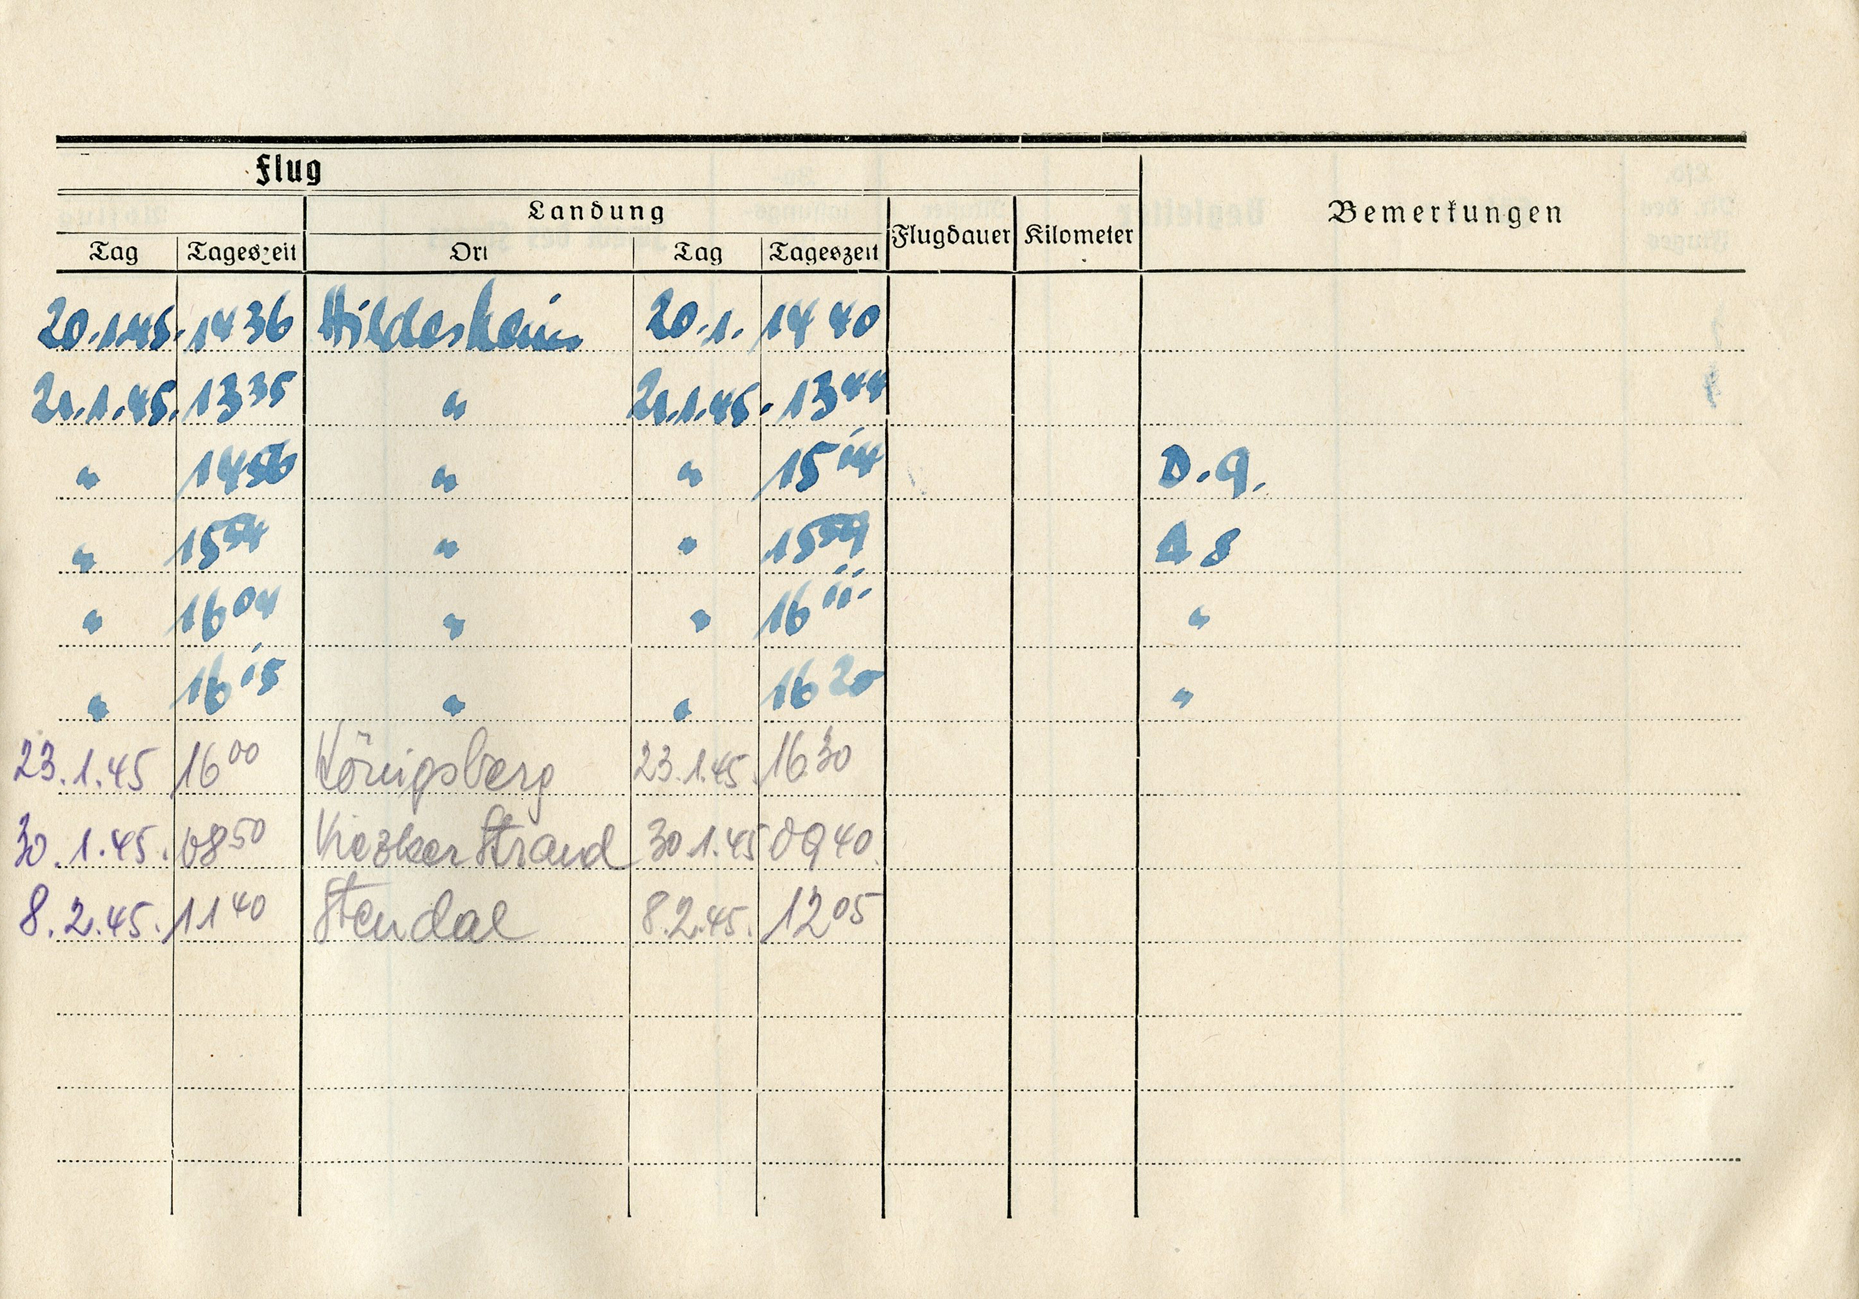 Flug
Landung
Bemerkungen
Tag Tageszeit Ort Tag Tageszeit Flugdauer Kilometer
20.1.45. 14 36 Hildesheim 20.1. 14 40
21.1.45. 13 35 " 21.1.45. 13 44
" 14 56 " " 15 14 D.9.
" 15 54 " " 15 59 A 8
" 16 04 " " 16 11 "
" 16 15 " " 16 20 "
23.1.45 16 00 Königsberg 23.1.45. 16 30
30.1.45. 08 50 Strand 30.1.45 09 40.
8.2.45. 11 40 Stendal 8.2.45. 12 05